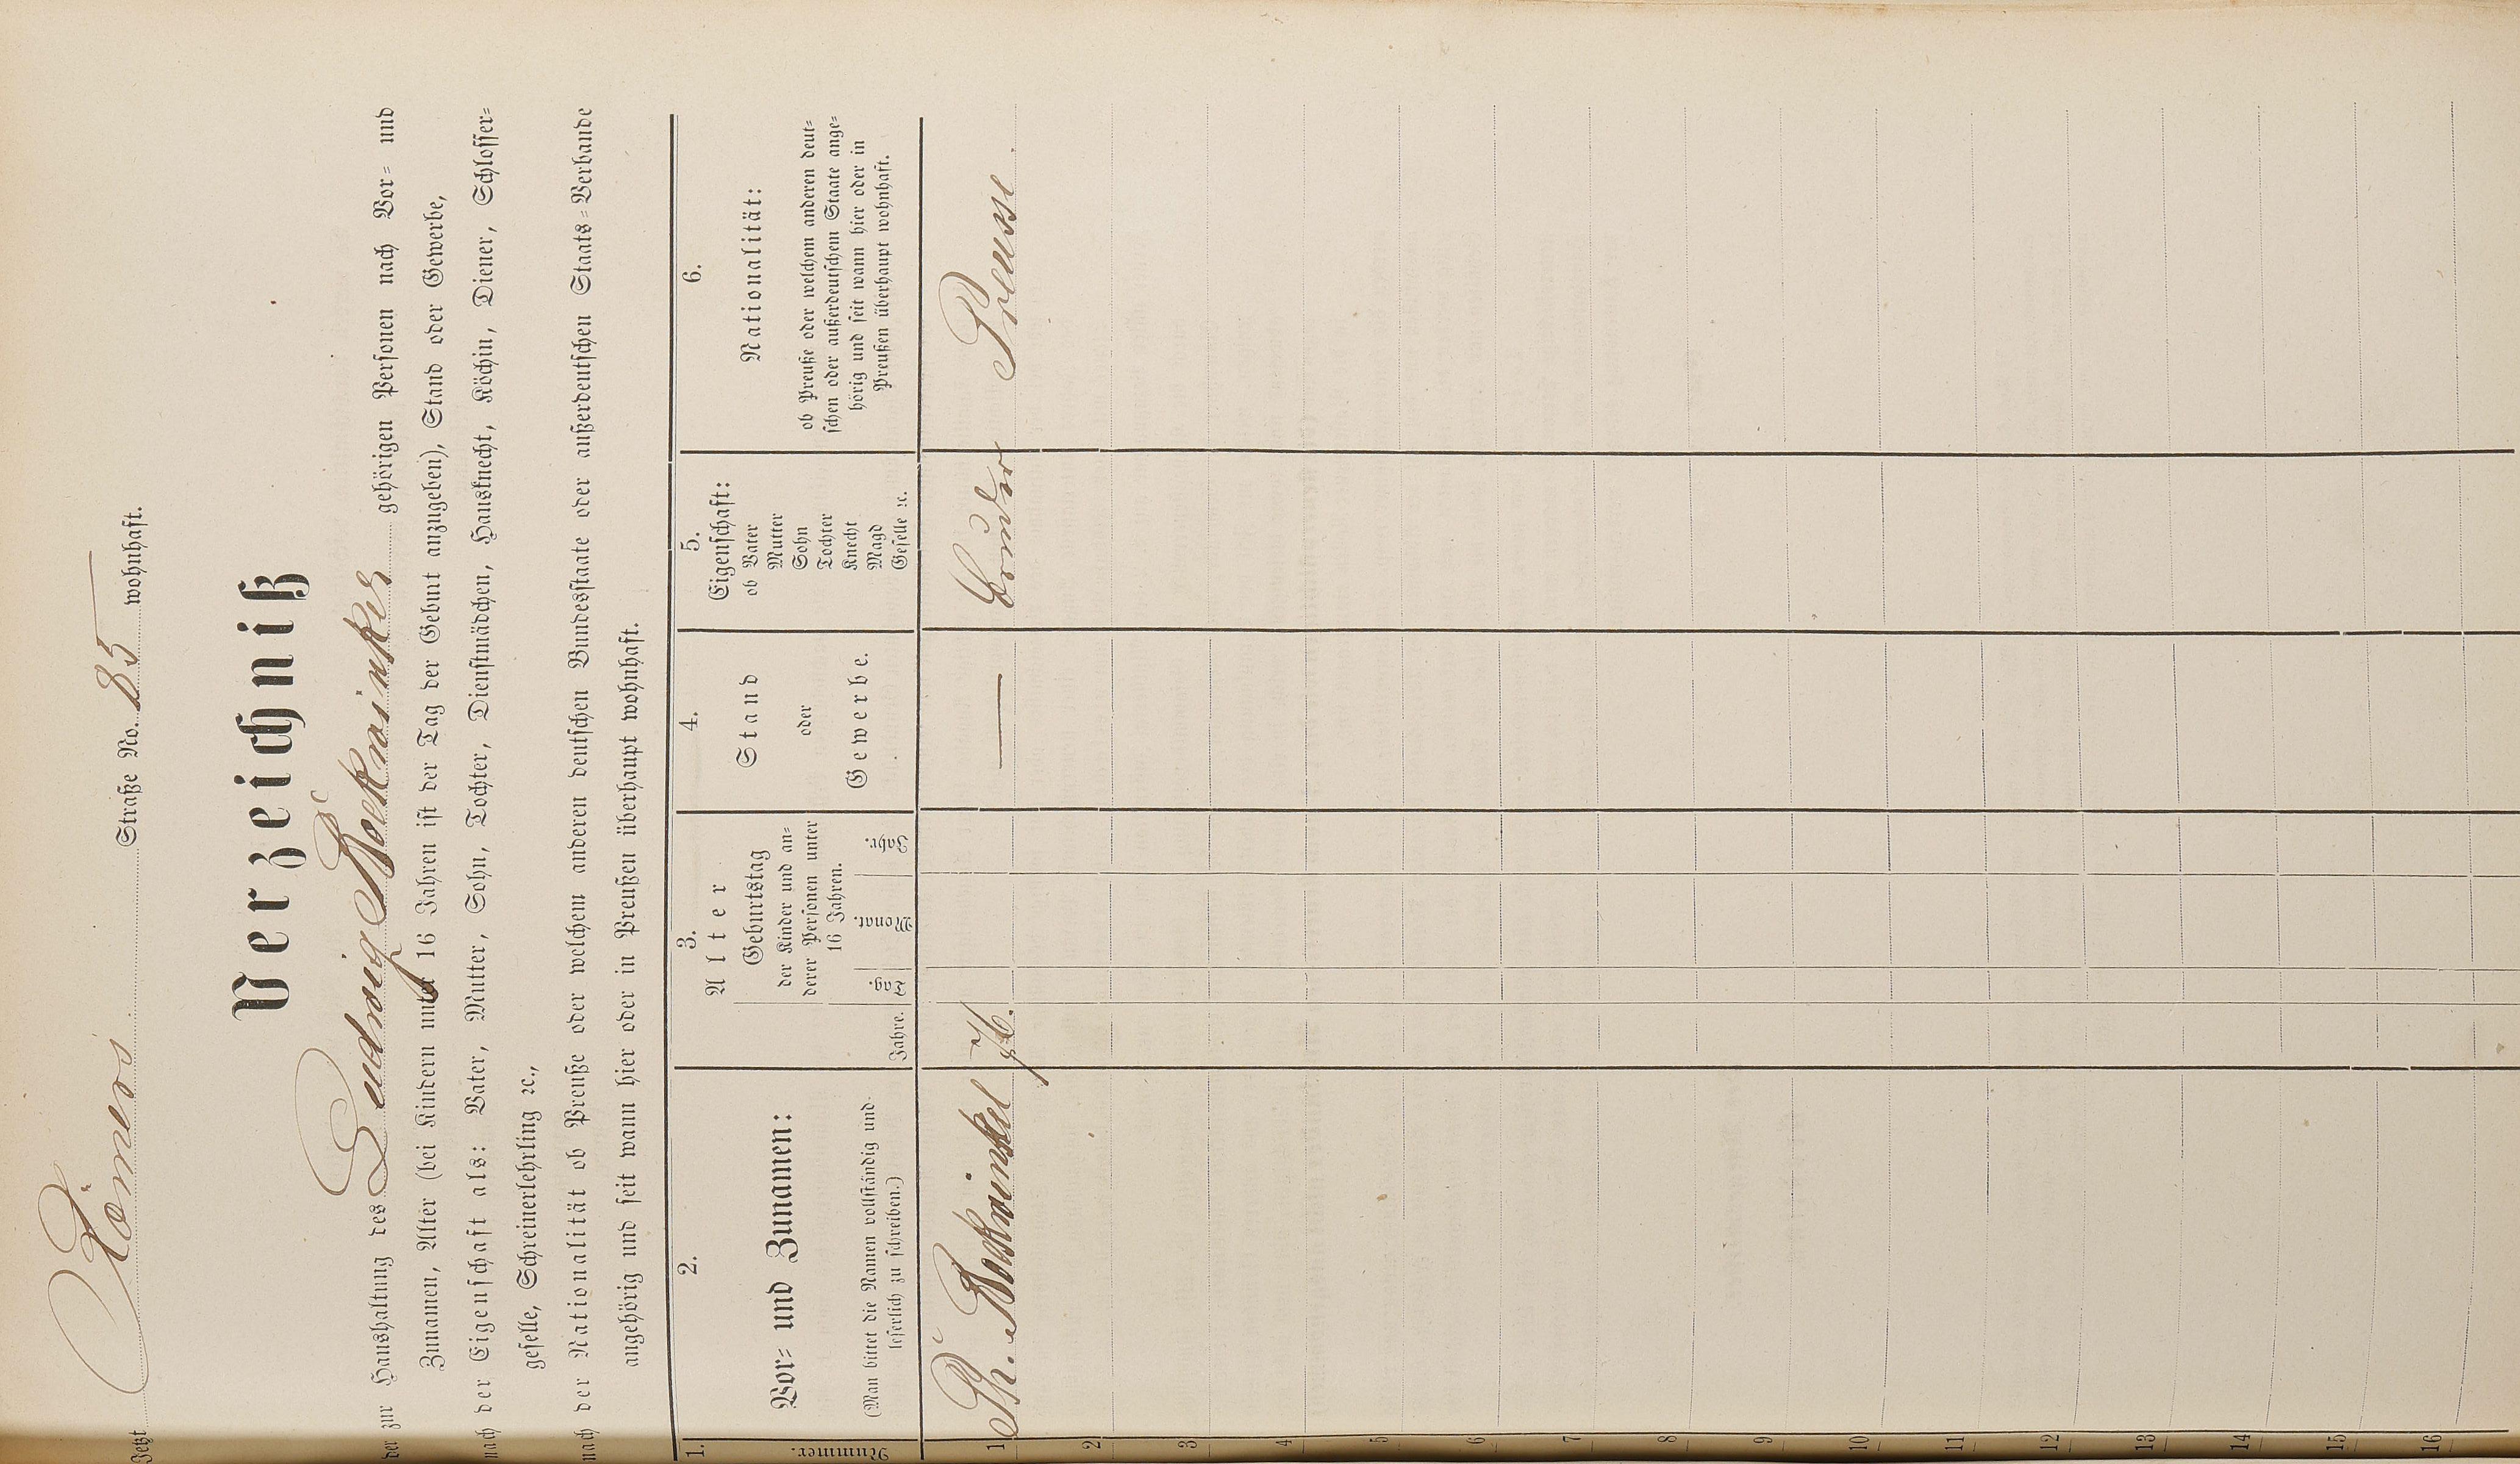 Jetzt Römer Straße No. 85 wohnhaft.
Verzeichniß
der zur Haushaltung des Ludwig Böckwinkel gehörigen Personen nach Vor- und
Zunamen, Alter (bei Kindern unter 16 Jahren ist der Tag der Geburt anzugeben), Stand oder Gewerbe,
nach der Eigenschaft als: Vater, Mutter, Sohn, Tochter, Dienstmädchen, Hausknecht, Köchin, Diener, Schlosser-
geselle, Schreinerlehrling ꝛc.,
nach der Nationalität ob Preuße oder welchem anderen deutschen Bundesstaate oder außerdeutschen Staats-Verbande
angehörig und seit wann hier oder in Preußen überhaupt wohnhaft.
1.
Nummer.
2.
Vor- und Zunamen:
(Man bittet die Namen vollständig und
leserlich zu schreiben.)
3.
Alter
Jahre.
Geburtstag
der Kinder und an-
derer Personen unter
16 Jahren.
Tag. Monat. Jahr.
4.
Stand
oder
Gewerbe.
5.
Eigenschaft:
ob Vater
Mutter
Sohn
Tochter
Knecht
Magd
Geselle ꝛc.
6.
Nationalität:
ob Preuße oder welchem anderen deut-
schen oder außerdeutschem Staate ange-
hörig und seit wann hier oder in
Preußen überhaupt wohnhaft.
1 Ph. Böckwinkel 76. — Bruder Preusse
2
3
4
5
6
7
8
9
10
11
12
13
14
15
16